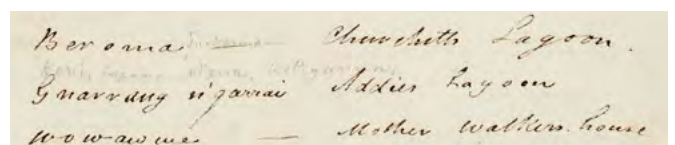 Beroma — Churchills Lagoon.
Gnarrang n'garrai Addies Lagoon
wowawme — Mother Walkers house